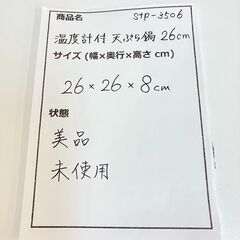 商品名 stp-3506
温度計付 天ぷら鍋 26cm
サイズ (幅×奥行×高さ cm)
26×26×8cm
状態
美品
未使用